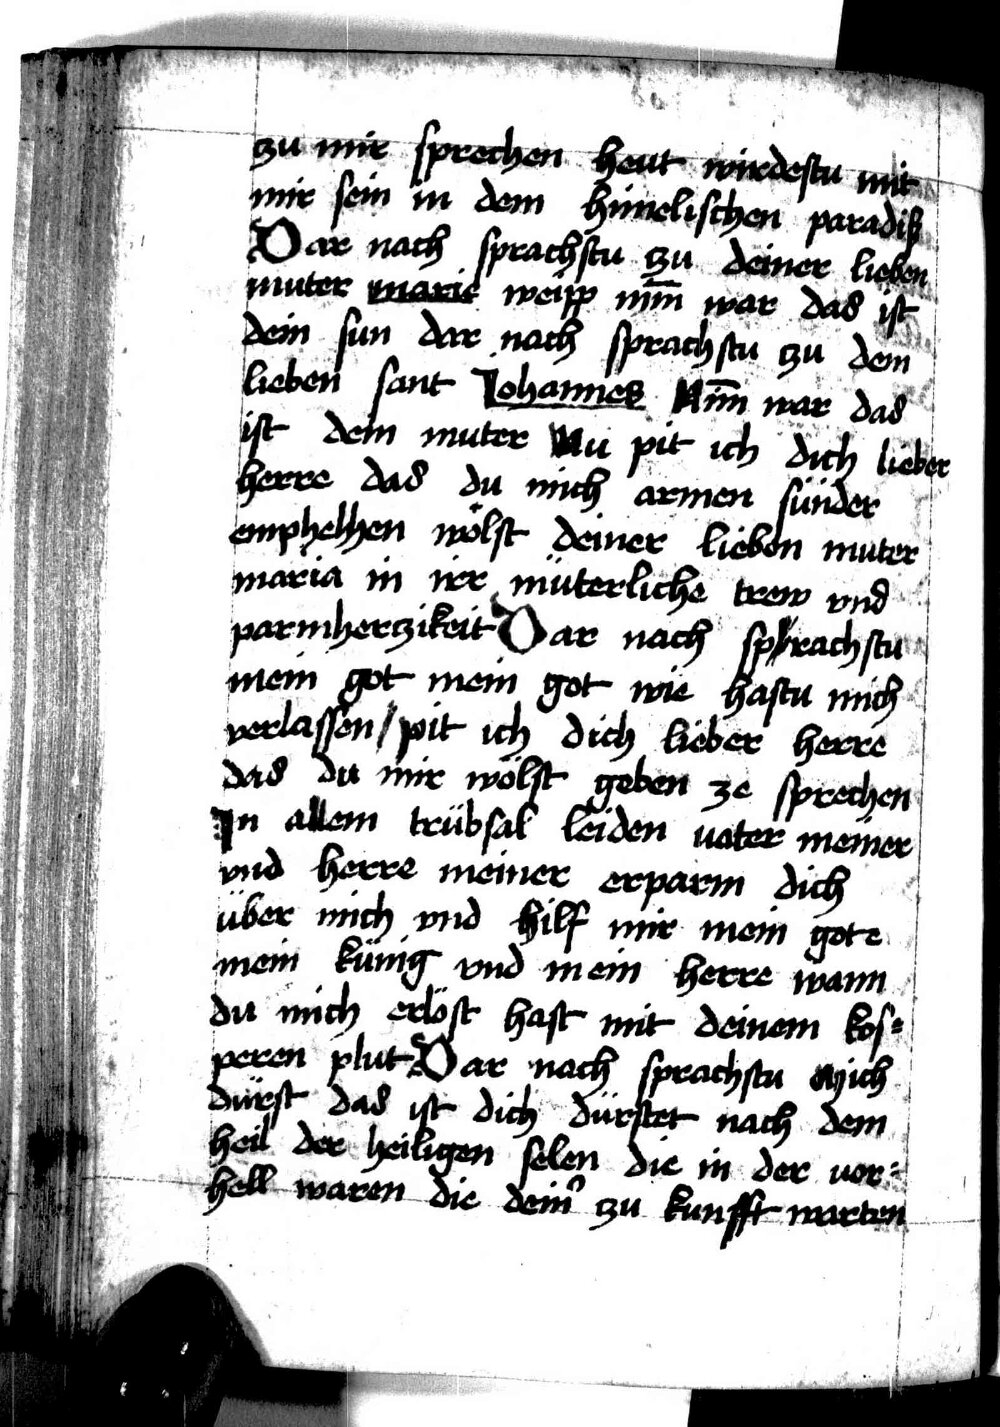 zu mir sprechen heut wirdestu mit
mir sein in dem himelischen paradiß
Dar nach sprachstu zu deiner lieben
muter marie weipp nim̄ war das ist
dein sun dar nach sprachstu zu dem
lieben sant Johannes Nim̄ war das
ist dein muter Nu pit ich dich lieber
herre das du mich armen sünder
emphelhen wölst deiner lieben muter
maria in irr müterliche trew vnd
parmherzikeit Dar nach sprachstu
mein got mein got wie hastu mich
verlassen / pit ich dich lieber herre
das du mir wölst geben ze sprechen
In allem trübsal leiden vater meiner
vnd herre meiner erparm dich
über mich vnd hilf mir mein gote
mein künig vnd mein herre wann
du mich erlöst hast mit deinem kos=
peren plut Dar nach sprachstu Mich
dürst das ist dich dürstet nach dem
heil der heiligen selen die in der vor=
hell waren die dein̕ zu kunfft warten